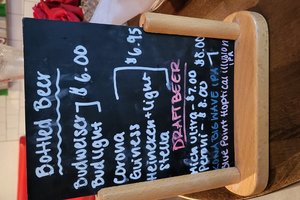 Bottled Beer
Budweiser
Budlight ] $6.00
Corona
Guiness
Heineken + light
Stella
$6.95
DRAFT BEER
Mich Ultra - $7.00
Peroni - $8.00
Kona BIG WAVE IPA
Blue Point Hoptical illusion
IPA
$8.00